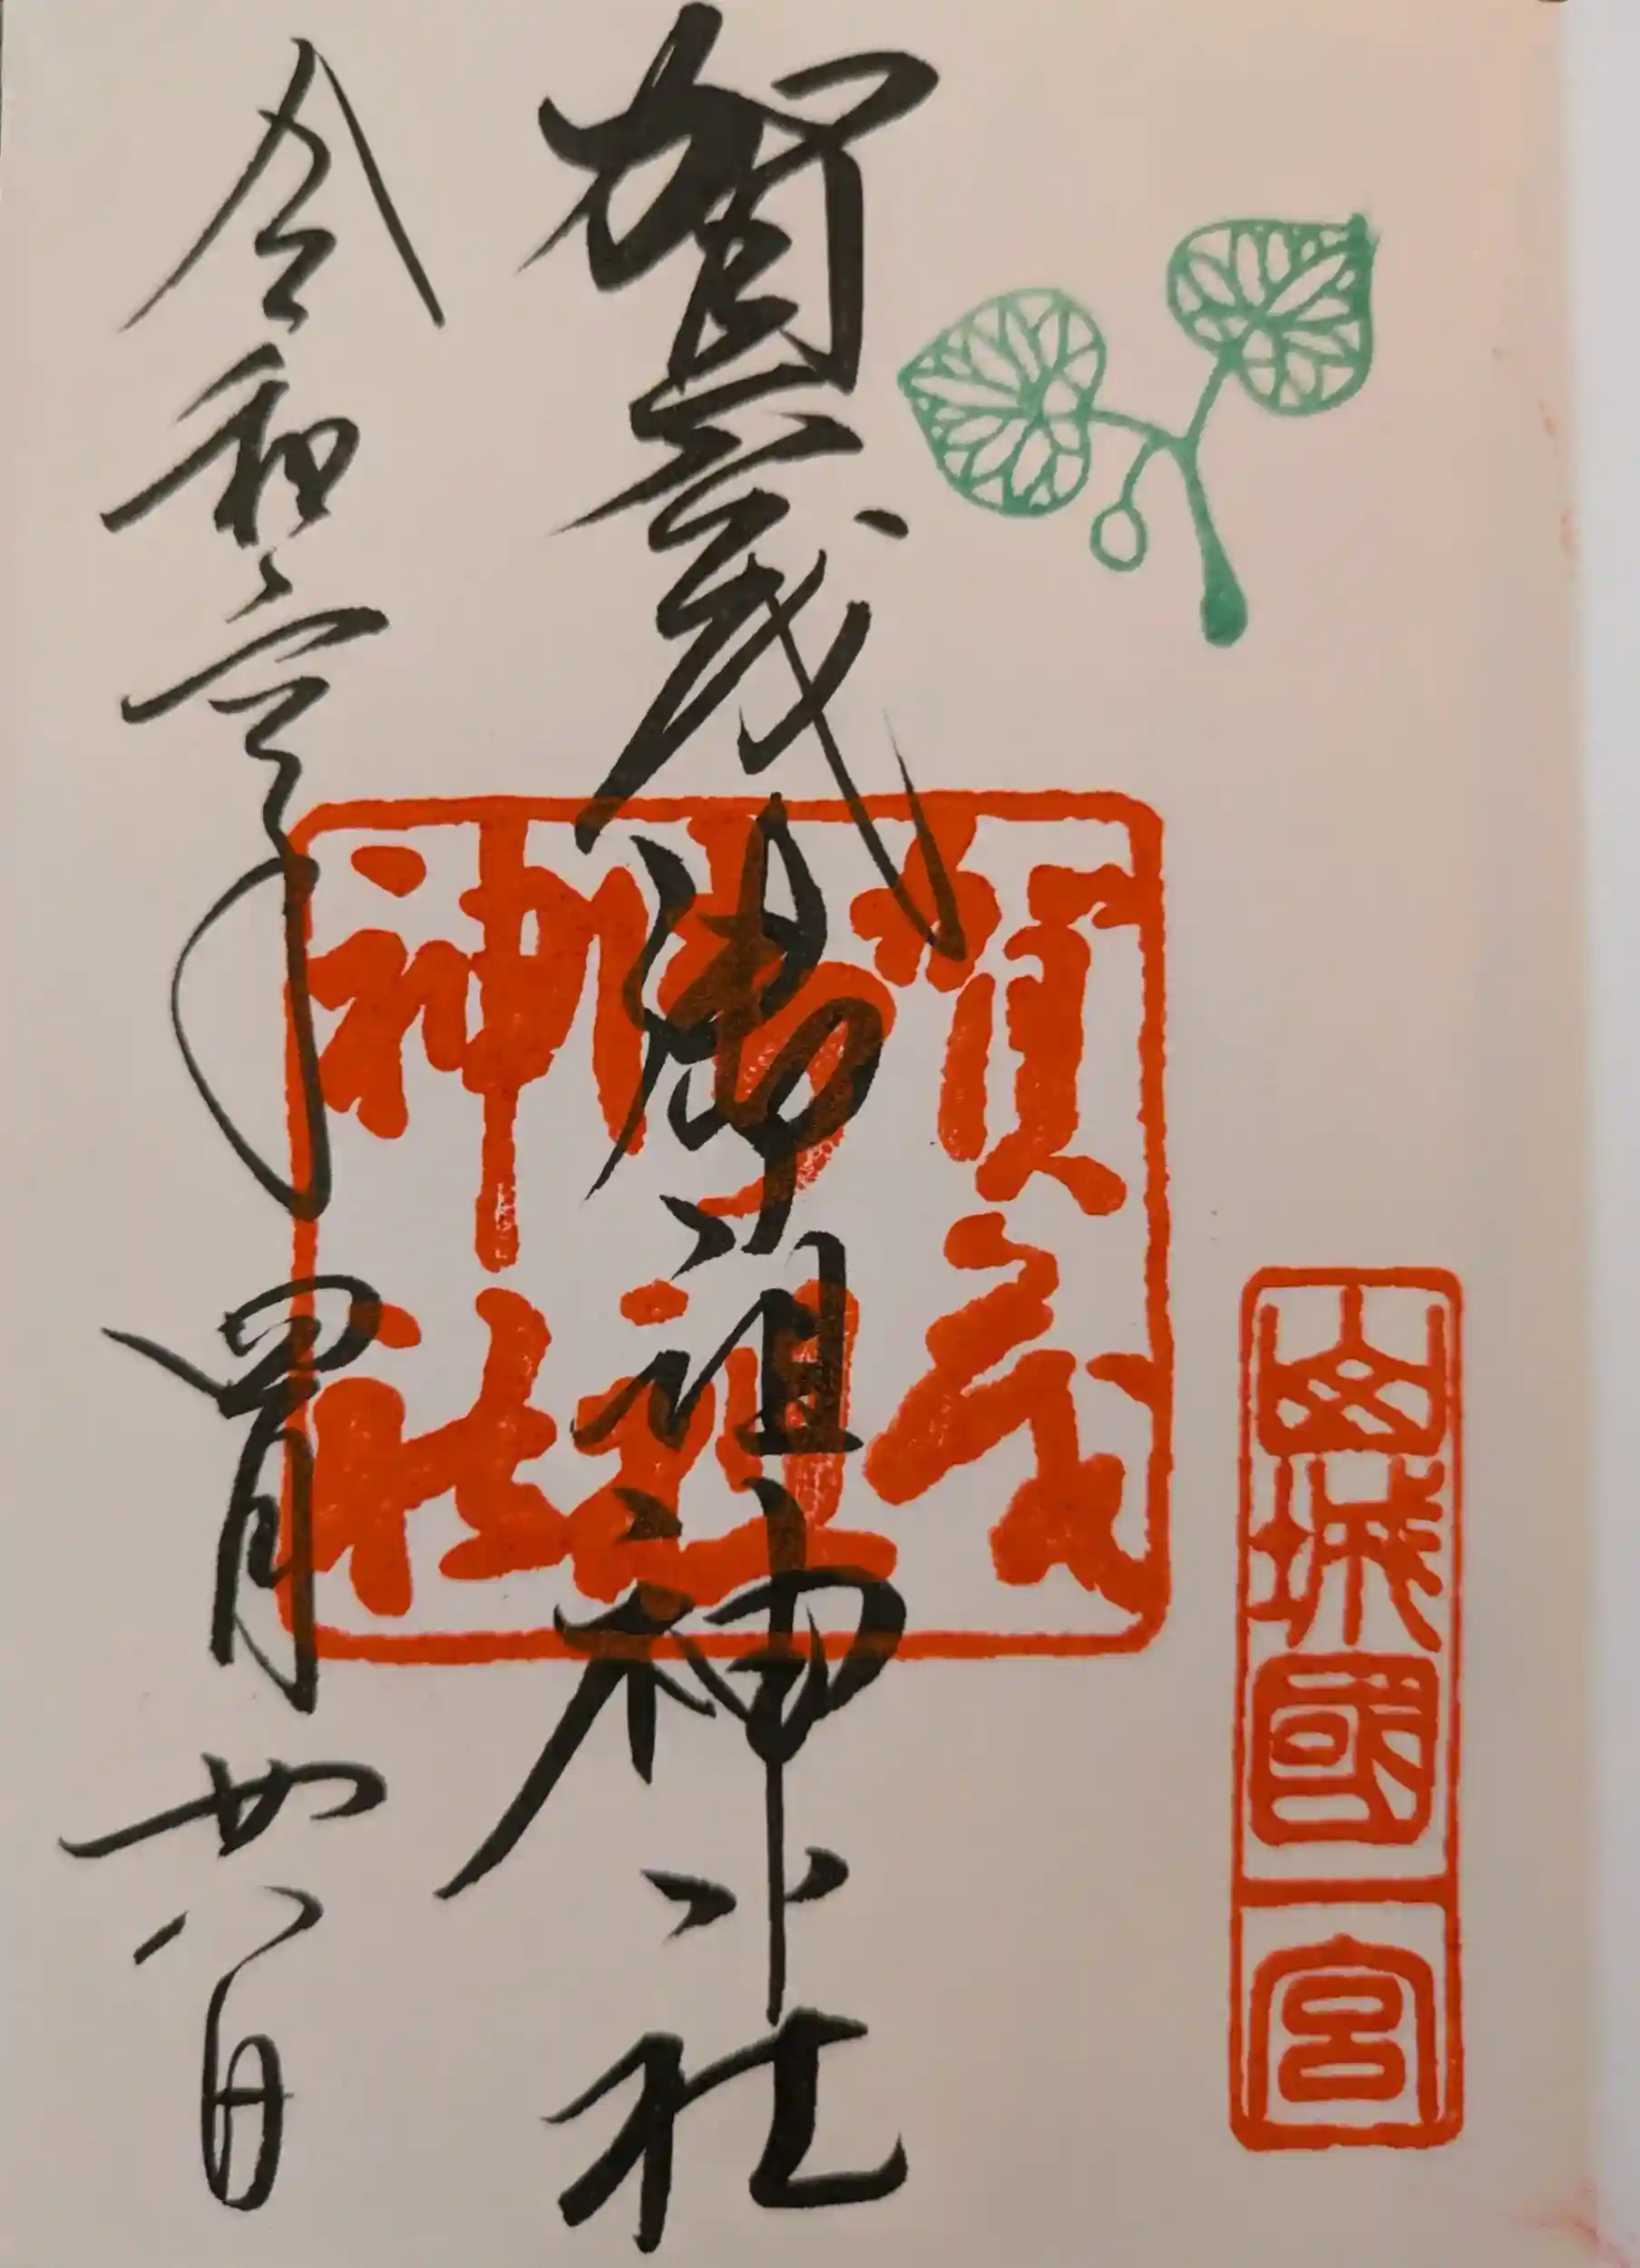 山城國一宮
賀茂御祖神社
賀茂
御祖
神社
令和年四月廿八日